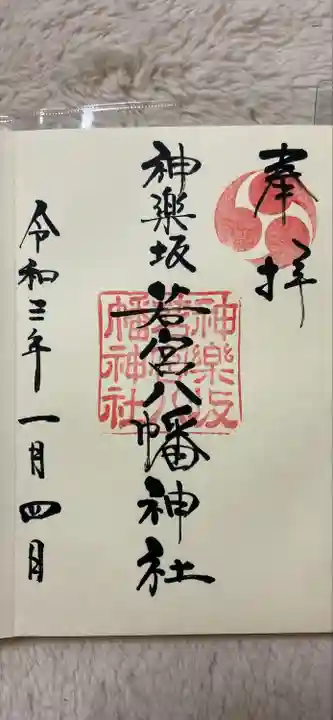 奉拝
神楽坂若宮八幡神社
神樂坂
若宮八
幡神社
令和三年一月四日